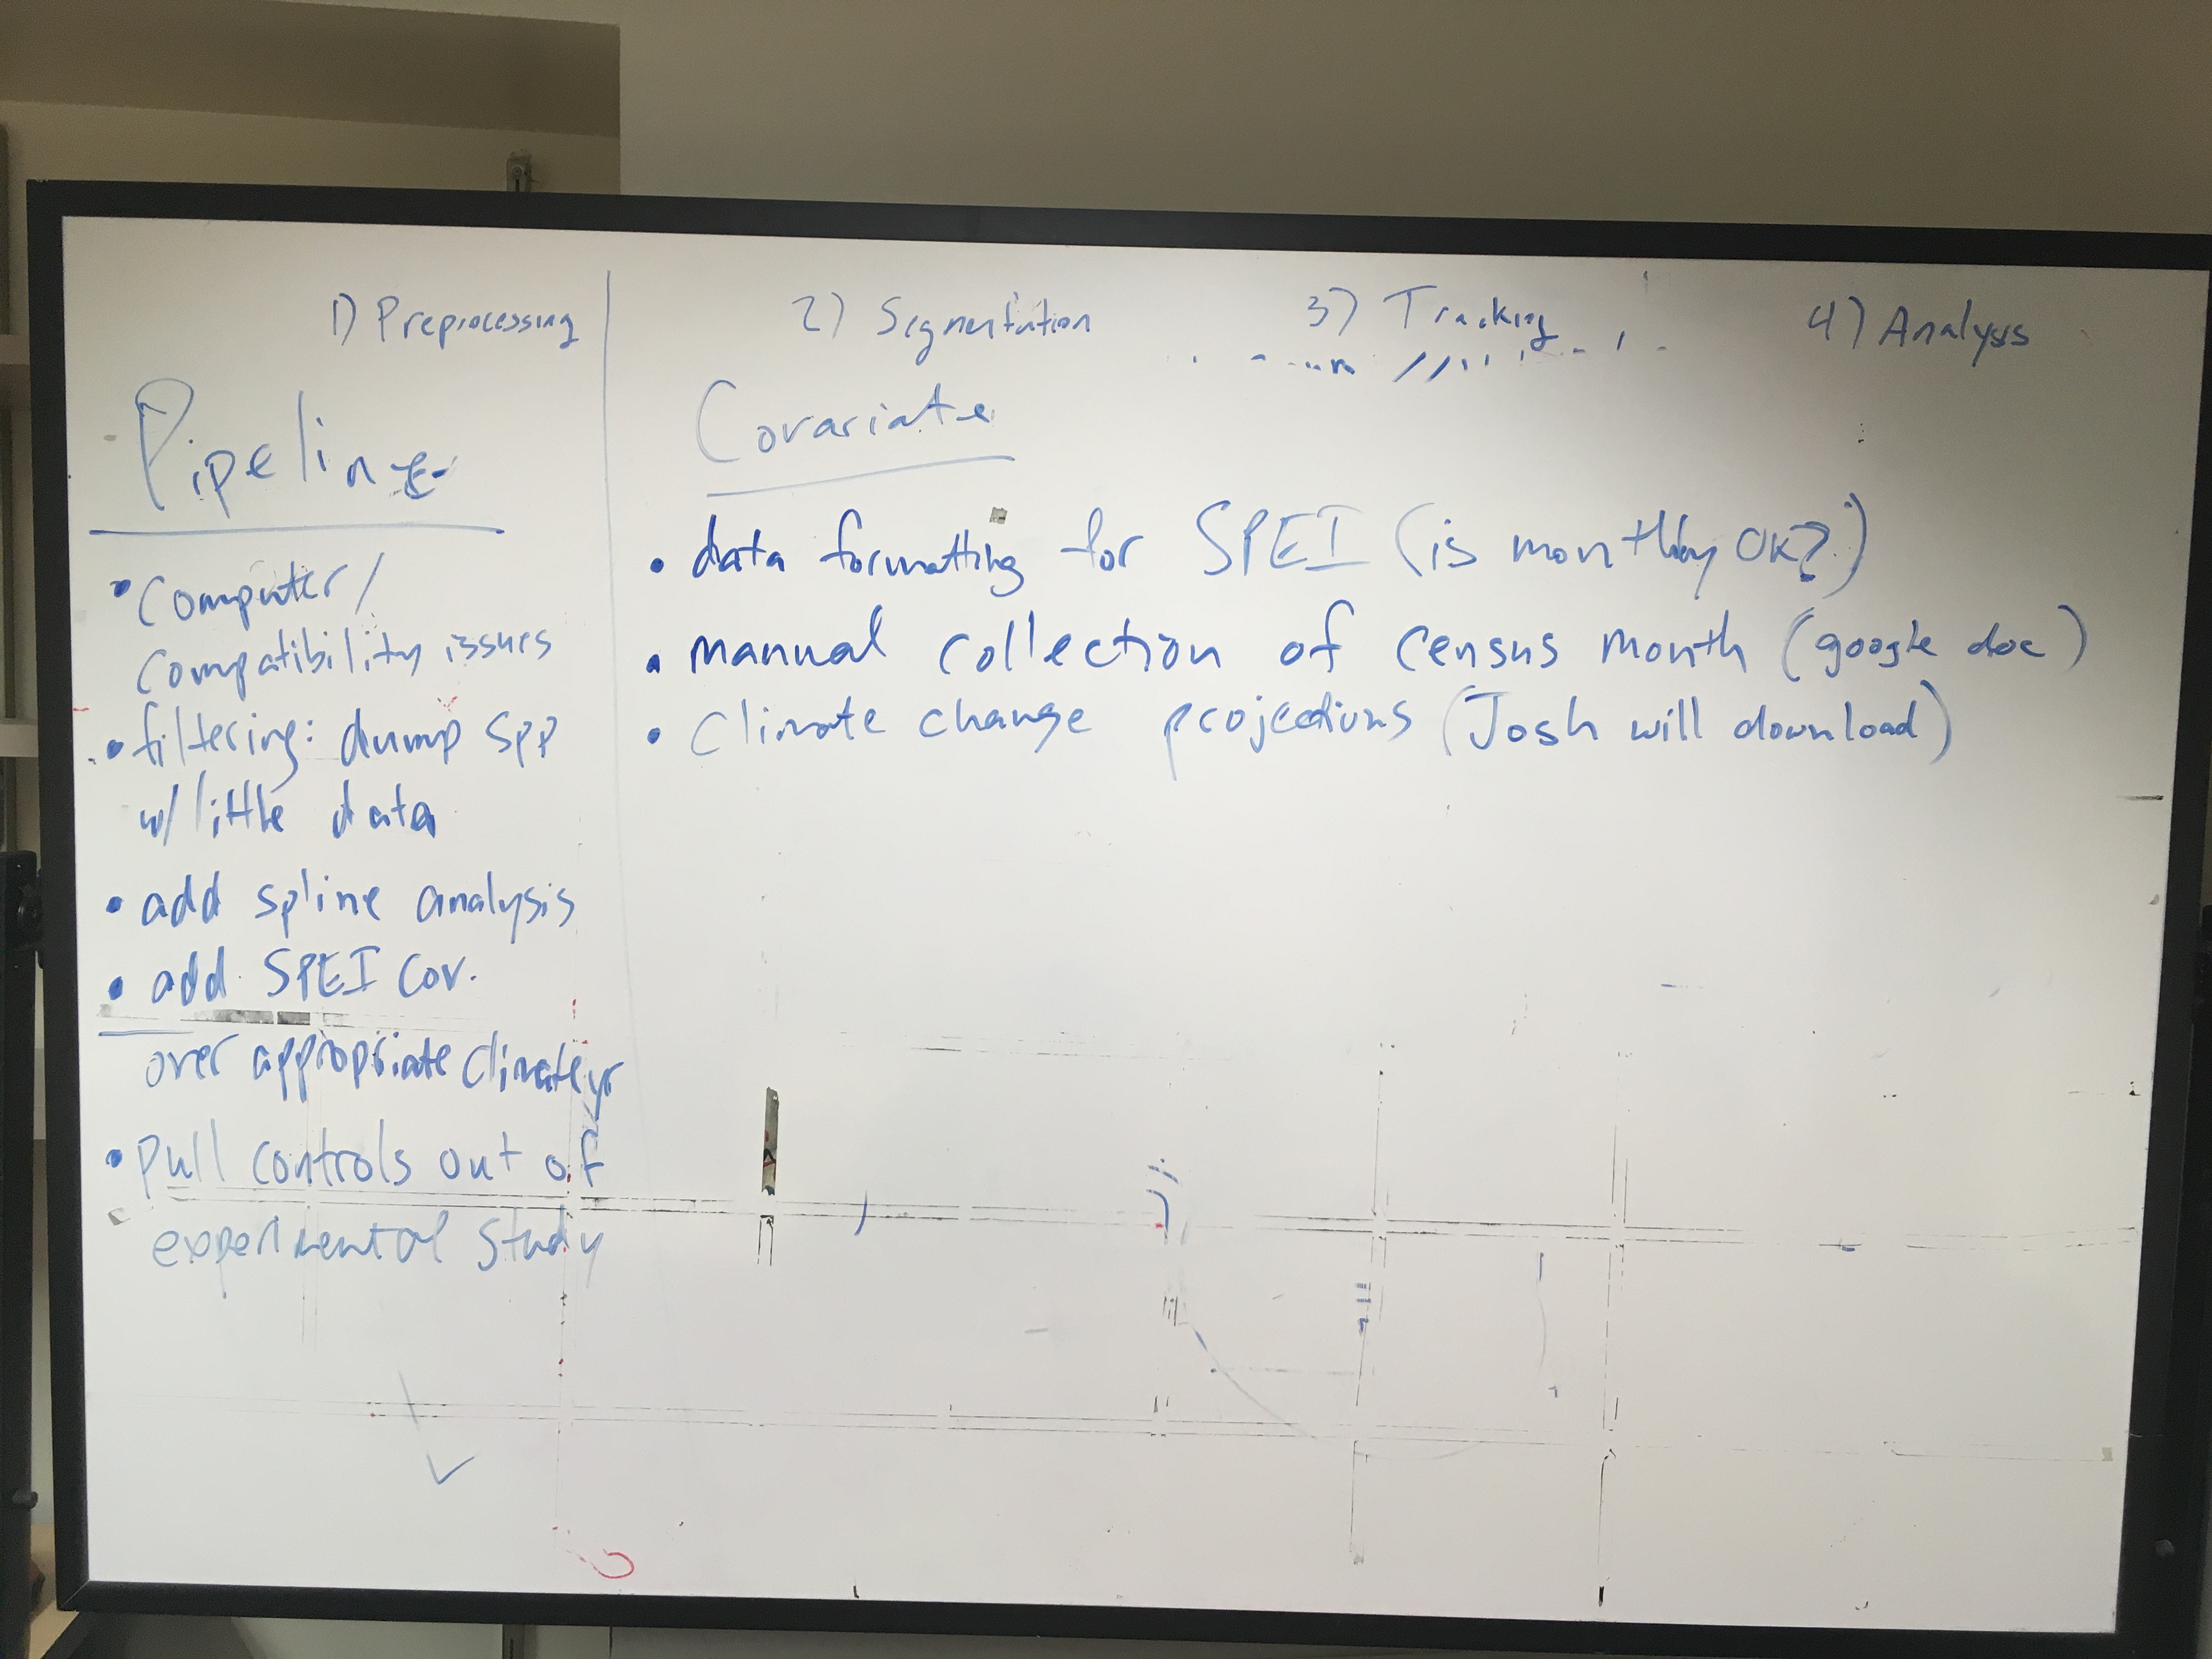 1) Preprocessing 2) Segmentation 3) Tracking 4) Analysis
Pipeline
• Computer/
compatibility issues
• filtering: dump spp
w/ little data
• add spline analysis
• add SPEI cov.
over appropriate climate yr
• pull controls out of
experimental study
Covariate
• data formatting for SPEI (is monthly OK?)
• manual collection of census month (google doc)
• climate change projections (Josh will download)